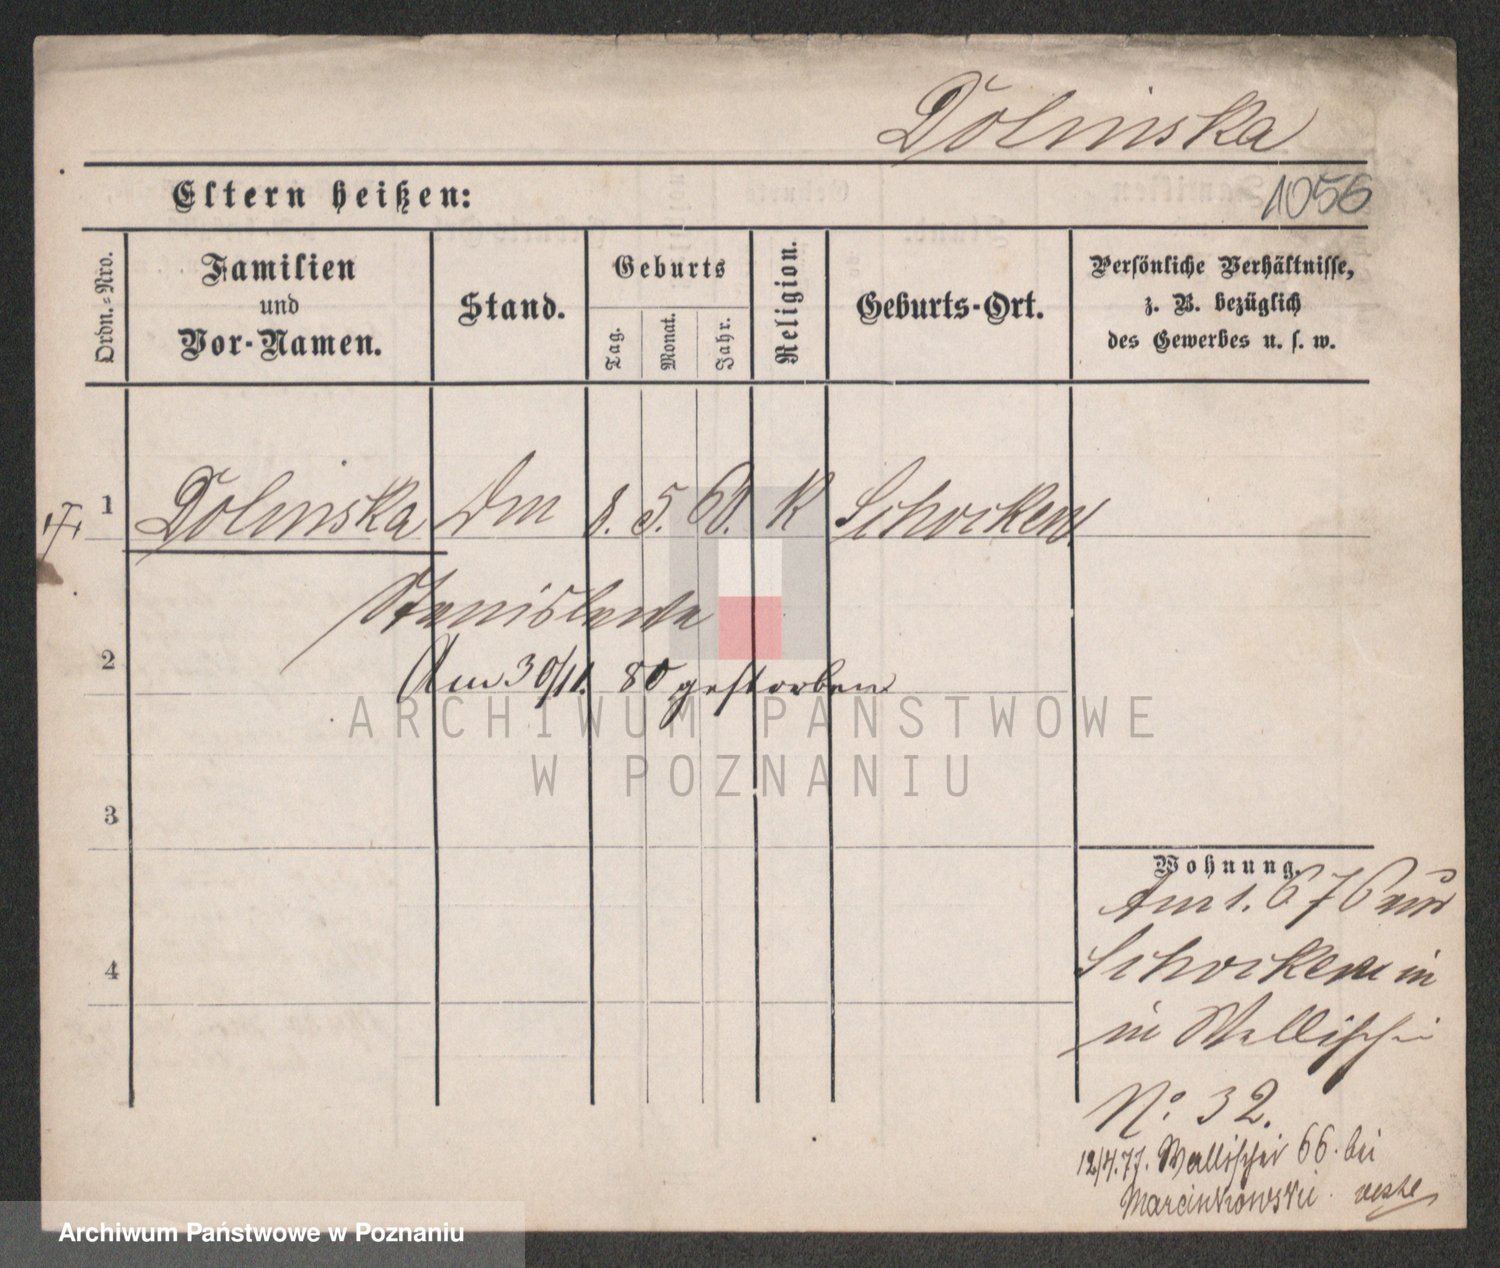 Dolinska
Eltern heißen:
1056
Ordn.-Nro.
Familien
und
Vor-Namen.
Stand.
Geburts
Tag.
Monat.
Jahr.
Religion.
Geburts-Ort.
Persönliche Verhältnisse,
z. B. bezüglich
des Gewerbes u. s. w.
1 Dolinska 8. 5. 60. K Schocken
Stanislawa
2
Am 30/11. 80 gestorben
ARCHIWUM PAŃSTWOWE
W POZNANIU
3
Wohnung.
Am 1. 6 76 aus
Schocken in
4
in Wallischei
No. 32.
12/4.77. Wallischei 66. bei
Marcinkowski.
Archiwum Państwowe w Poznaniu